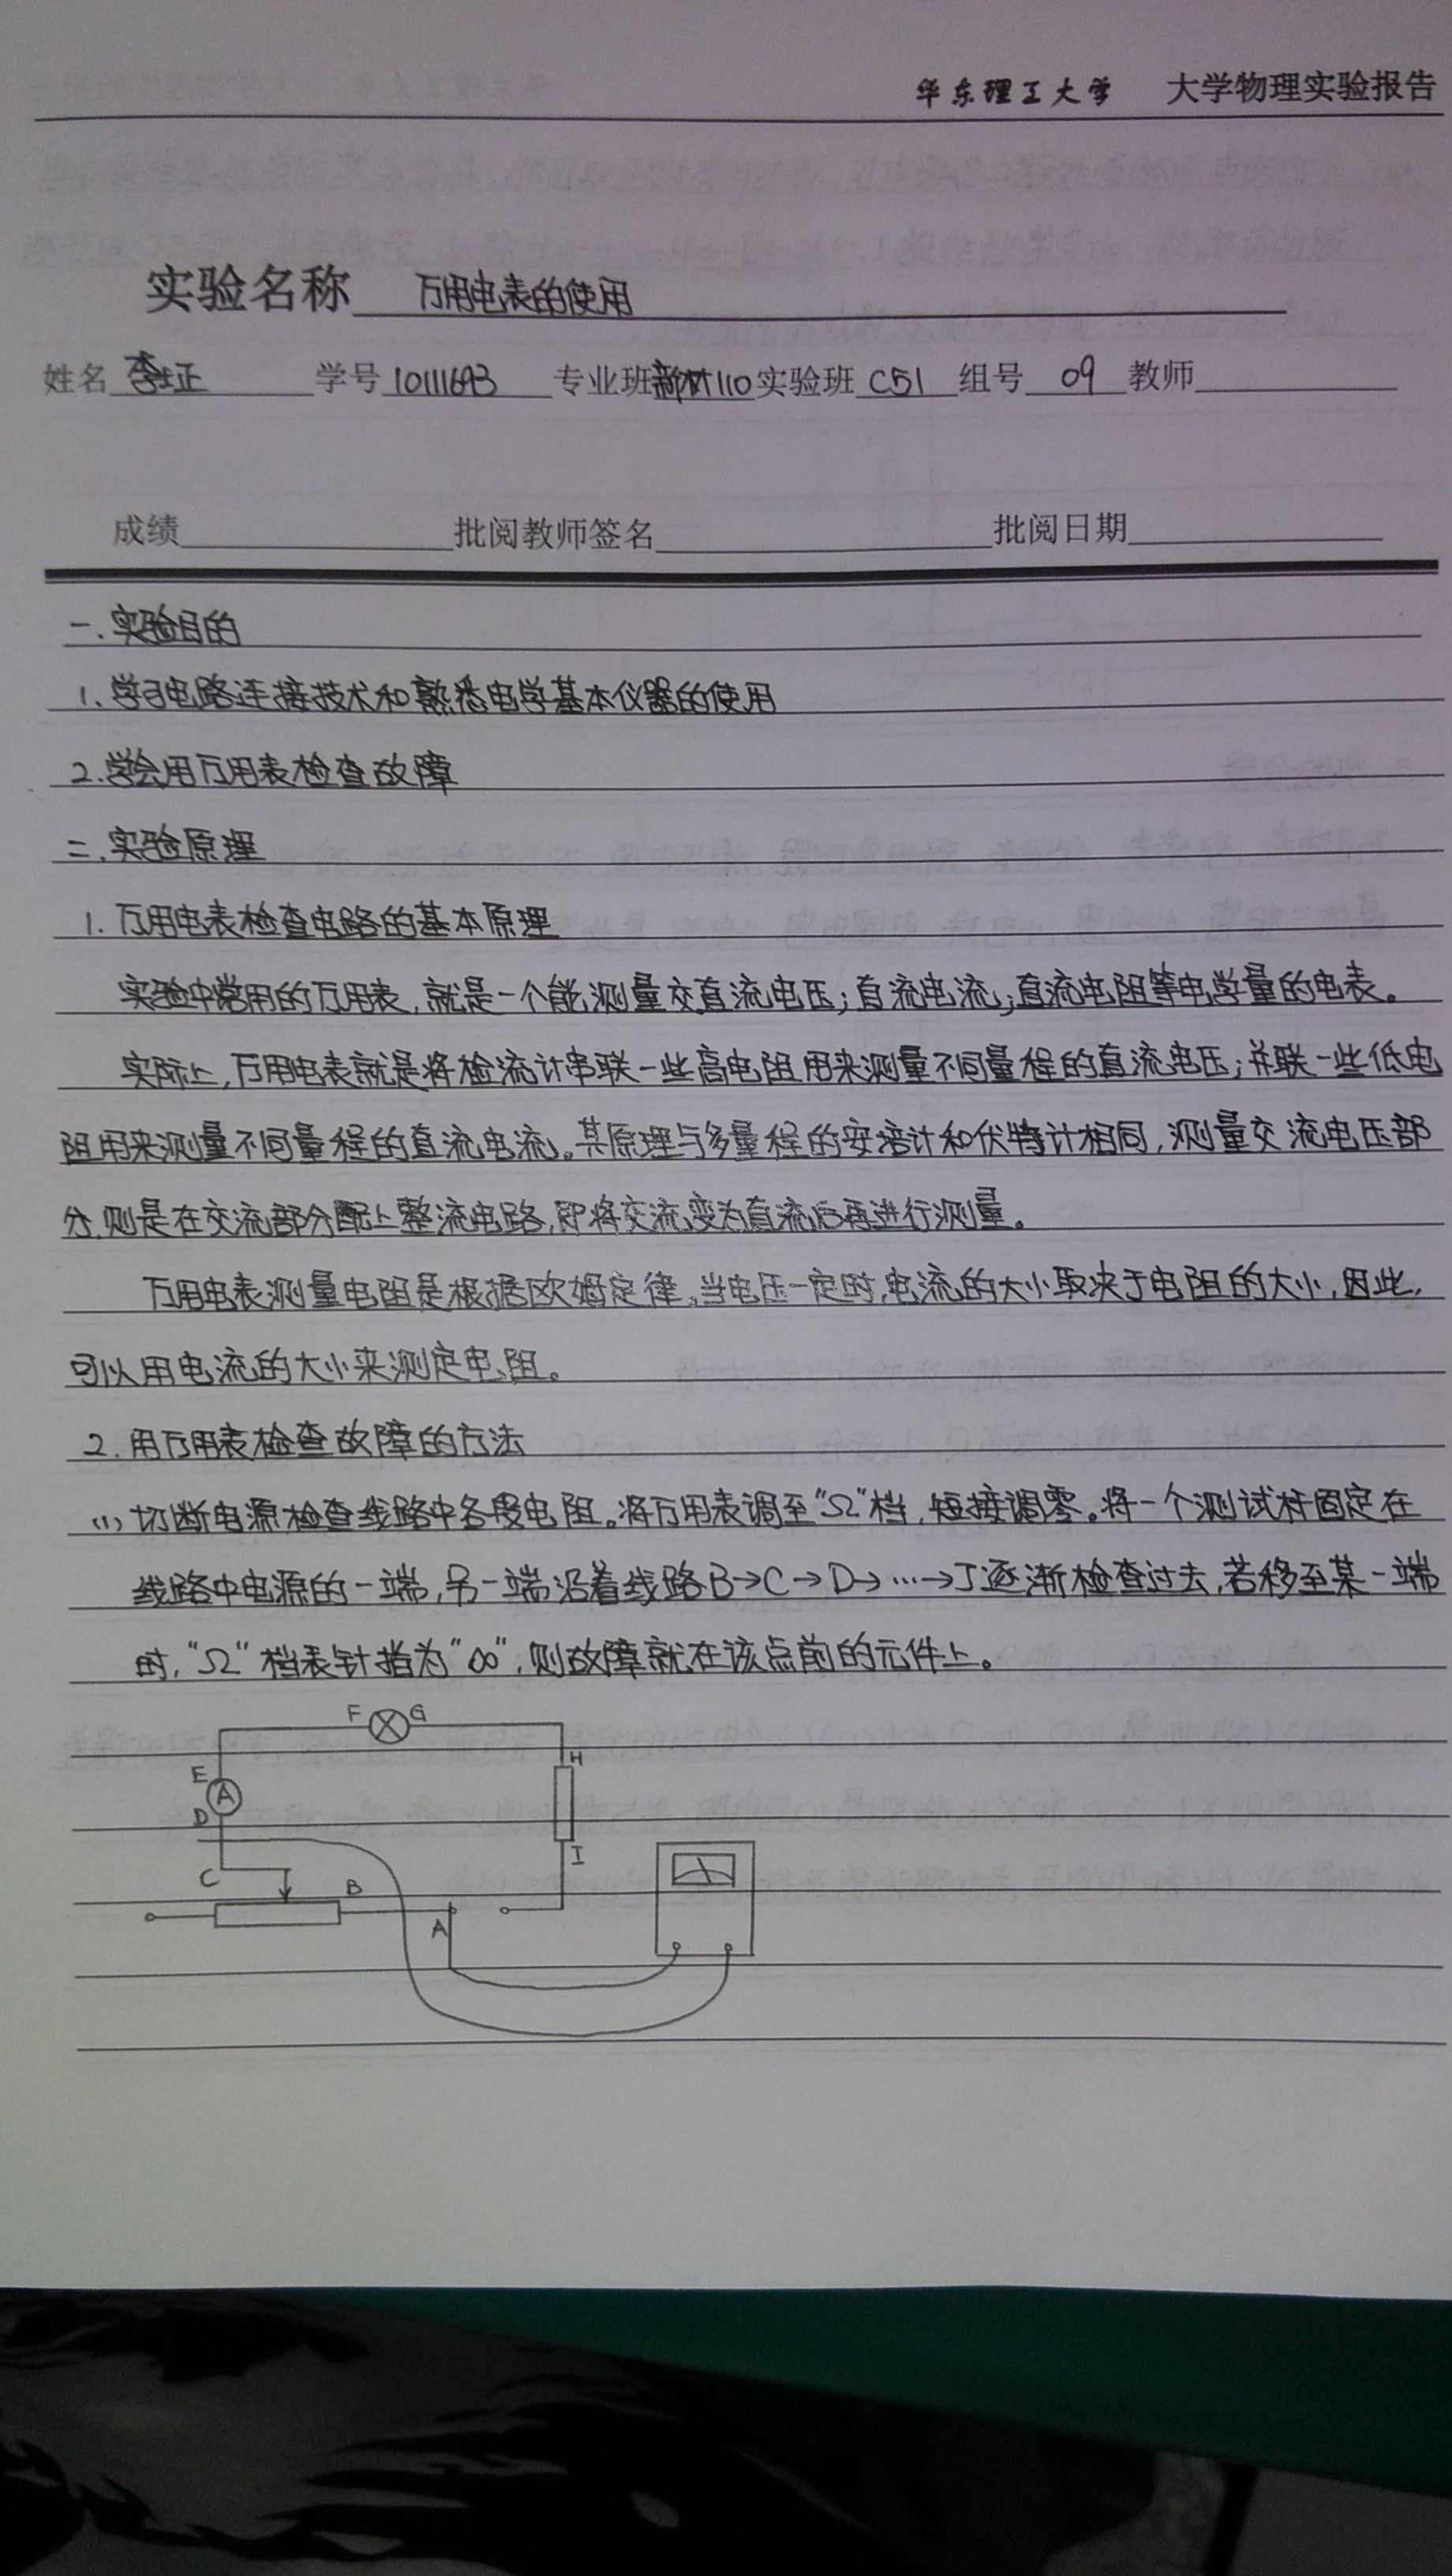 华东理工大学 大学物理实验报告
实验名称 万用电表的使用
姓名 李 正 学号 10111693 专业班 新材110 实验班 C51 组号 09 教师
成绩 批阅教师签名 批阅日期
一.实验目的
1.学习电路连接技术和熟悉电学基本仪器的使用
2.学会用万用表检查故障
二.实验原理
1.万用电表检查电路的基本原理
实验中常用的万用表,就是一个能测量交直流电压;直流电流;直流电阻等电学量的电表。
实际上,万用电表就是将检流计串联一些高电阻用来测量不同量程的直流电压;并联一些低电
阻用来测量不同量程的直流电流。其原理与多量程的安培计和伏特计相同,测量交流电压部
分,则是在交流部分配上整流电路,即将交流变为直流后再进行测量。
万用电表测量电阻是根据欧姆定律。当电压一定时,电流的大小取决于电阻的大小,因此,
可以用电流的大小来测定电阻。
2.用万用表检查故障的方法
(1)切断电源检查线路中各段电阻。将万用表调至“Ω”档,短接调零。将一个测试杆固定在
线路中电源的一端,另一端沿着线路B→C→D→…→J逐渐检查过去,若移至某一端
时,“Ω”档表针指为“∞”,则故障就在该点前的元件上。
F G
H
E A
D
I
C B
A